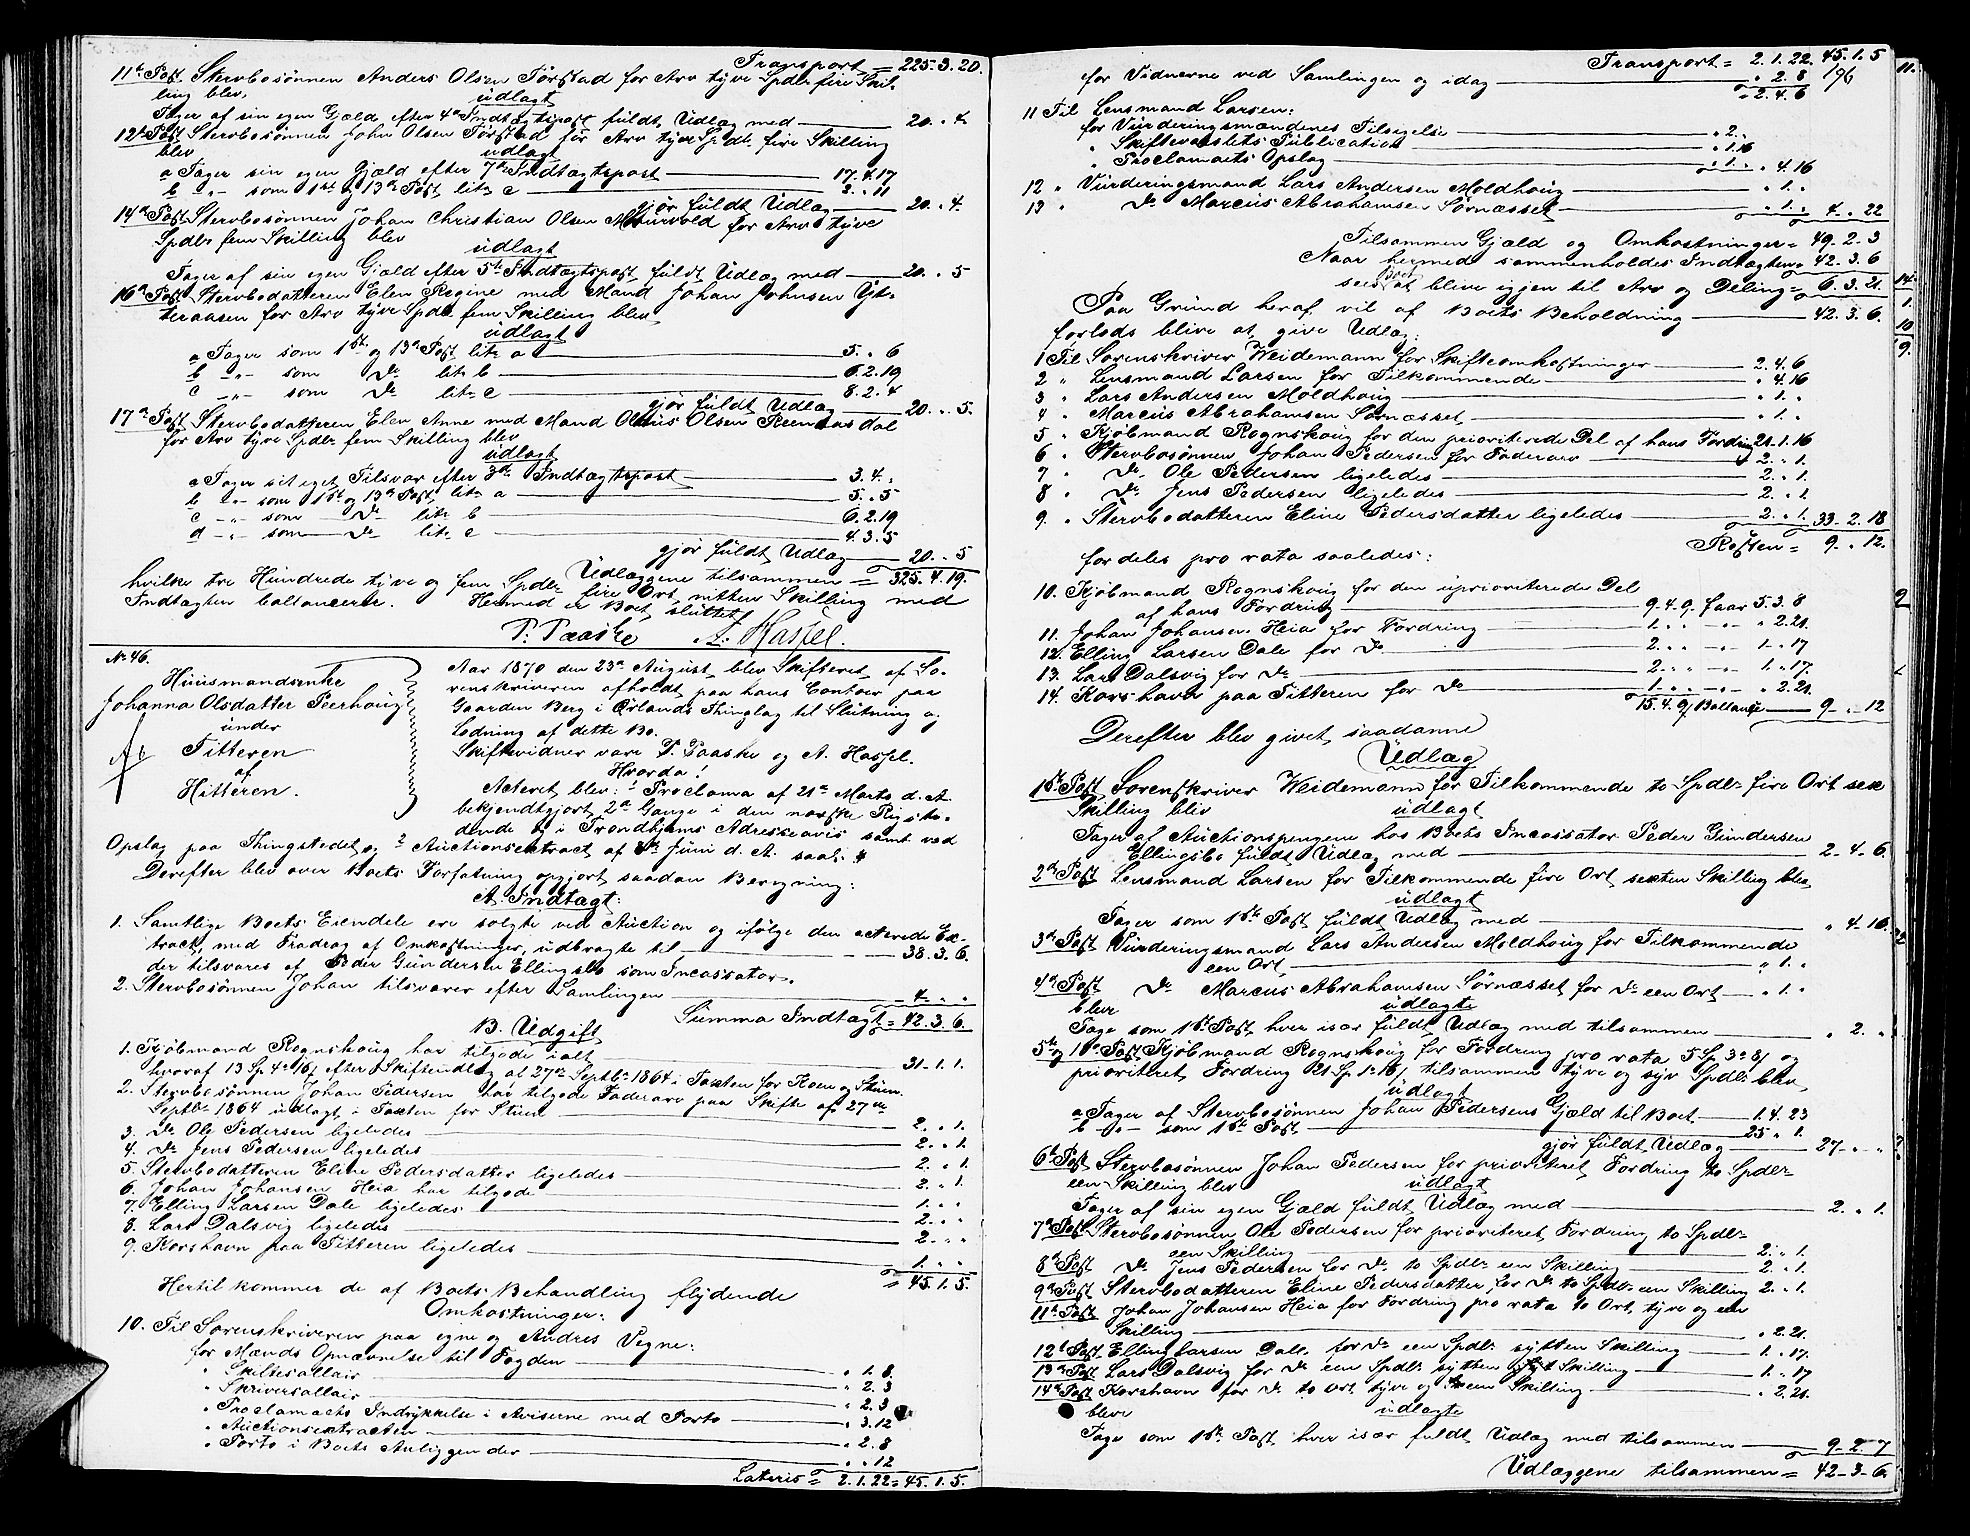 Transport = 225. 3. 20.
11te Post Stervbosønnen Anders Olsen Tørstad for Arv tyve Spdlr fire Skil-
ling blev,
udlagt
Tager af sin egen Gjæld efter 4de Indtægtspost fuldt Udlæg med — 20. „ 4.
12te Post Stervbosønnen John Olsen Tørstad for Arv tyve Spdlr. fire Skilling
blev udlagt
a Tager sin egen Gjæld efter 7de Indtægtspost — 17. 4. 17
b „ - som 1ste og 13de Post, litr c — 2. „ 11
gjør fuldt Udlæg — 20. „ 4.
14de Post Stervbosønnen Johan Christian Olsen for Arv tyve
Spdlr fem Skilling blev
udlagt
Tager af sin egen Gjæld efter 5te Indtægtspost, fuldt Udlæg med — 20. „ 5
16de Post Stervbodatteren Elen Regine med Mand Johan Johnsen Yt-
teraasen for Arv tyve Spdlr. fem Skilling blev,
udlagt
a Tager som 1ste og 13de Post litr a — 5. „ 6
b - „ - som Do litr b — 6. 2. 19
c - „ - som Do litr c — 8. 2. 4
gjør fuldt Udlæg — 20. „ 5.
17de Post Stervbodatteren Elen Anne med Mand Olaus Olsen Reendasdal
for Arv tyve Spdlr fem Skilling blev
udlagt
a Tager sit eget Tilsvar efter 3die Indtægtspost — 3. 4. „
b „ - som 1ste og 13de Post, litr a — 5. „ 5
c - „ - som Do litr b — 6. 2. 19
d - „ - som Do litr c — 4. 3. 5
gjør fuldt Udlæg — 20. „ 5
Udlæggene tilsammen = 325. 4. 19.
hvilke tre Hundrede tyve og fem Spdlr fire Ort nitten Skilling med
Indtægten ballancerer. Hermed er Boet sluttet,
P. Paaske A. Hassel.
No 46.
Huusmandsenke
Johanna Olsdatter Peerhoug
under
Titteren
af
Hitteren.
Aar 1870 den 23de August, blev Skifteret af So-
renskriveren afholdt paa hans Contoir paa
Gaarden Berg i Ørlands Thinglag til Slutning og
Lodning af dette Bo.
Skiftevidner vare P. Paaske og A. Hassel.
Hvorda!
Acteret blev: 1 Proclama af 21de Marts d. A.
bekjendtgjort 2de Gange i den norske Rigsti-
dende og i Trondhjems Adresseavis samt ved
Opslag paa Thingstedet, og 2 Auctionsextract af 8de Juni d. A. saal. #
Derefter blev over Boets Forfatning opgjort saadan Beregning:
A. Indtægt:
1. Samtlige Boets Eiendele ere solgte ved Auction og ifølge den acterede Ex-
tract, med Fradrag af Omkostninger, udbragte til — 38. 3. 6.
der tilsvares af Peder Gundersen Ellingsbo som Incassator.
2. Stervbosønnen Johan tilsvarer efter Samlingen — 4. „ „
Summa Indtægt = 42. 3. 6.
B. Udgift
1. Kjøbmand Rognskoug har tilgode ialt — 31. 1. 1.
hvoraf 13 Sp. 4 16/ efter Skifteudlæg af 27de Septbr 1864 i Taxten for Koen og Stuen
2. Stervbosønnen Johan Pedersen har tilgode Faderarv paa Skifte af 27de
Septbr 1864 udlagt i Taxten for Stuen — 2. „ 1.
3. Do Ole Pedersen ligeledes — 2. „ 1.
4. Do Jens Pedersen ligeledes — 2. „ 1.
5. Stervbodatteren Eline Pedersdatter ligeledes — 2. „ 1.
6. Johan Johansen Heia har tilgode — 1. „ „
7. Elling Larsen Dale ligeledes — 2. „ „
8. Lars Dalsvig ligeledes — 2. „ „
9. Korshavn paa Titteren ligeledes — 1. „ „
= 45. 1. 5.
Hertil kommer de af Boets Behandling flydende
Omkostninger:
10. Til Sorenskriveren paa egne og Andres Vegne:
for Mænds Opnævnelse til Fogden — „ 1. 8.
„ Skiftesallair — „ 2. 3
„ Skriversallair — „ 2. 3
„ Proclamaets Indrykkelse i Aviserne med Porto — „ 3. 12
„ Auctionsextracten — „ 2. 8
„ Porto i Boets Anliggender — „ „ 12
Lateris = 2. 1. 22 = 45. 1. 5.
Transport = 2. 1. 22. 45. 1. 5
196
for Vidnerne ved Samlingen og idag — „ 2. 8
„ 2. 4. 6
11 Til Lensmand Larsen:
for Vurderingsmændenes Tilsigelse — „ 2. „
„ Skifteværstets Publication — „ 1. 16
„ Proclamaets Opslag — „ 1. „ „ 4. 16
12 „ Vurderingsmand Lars Andersen Moldhoug — „ 1. „
13 „ Do Marcus Abrahamsen Sørnæsset — „ 1. „ 4. „ 22
Tilsammen Gjæld og Omkostninger = 49. 2. 3
Naar hermed sammenholdes Indtægten = 42. 3. 6
sees Boet at blive igjen til Arv og Deling = 6. 3. 21.
Paa Grund heraf vil af Boets Beholdning — 42. 3. 6.
forlods blive at give Udlæg:
1 Til Sorenskriver Weidemann for Skifteomkostninger — 2. 4. 6
2 „ Lensmand Larsen for Tilkommende — „ 4. 16
3 „ Lars Andersen Moldhoug — „ 1. „
4 „ Marcus Abrahamsen Sørnæsset — „ 1. „
5 „ Kjøbmand Rognskoug for den prioriterede Del af hans Fordring 21. 1. 16
6 „ Stervbosønnen Johan Pedersen for Faderarv — 2. „ 1.
7 „ Do Ole Pedersen ligeledes — 2. „ 1.
8 „ Do Jens Pedersen ligeledes — 2. „ 1.
9. „ Stervbodatteren Eline Pedersdatter ligeledes — 2. „ 1. 33. 2. 18
Resten = 9. „ 12.
fordeles pro rata saaledes:
10. Kjøbmand Rognskoug for den uprioriterede Del
af hans Fordring — 9. 4. 9. faar 5. 3. 8
11. Johan Johansen Heia for Fordring — 1. „ „ - „ - „ 2. 21.
12. Elling Larsen Dale for Do — 2. „ „ - „ - 1. „ 17
13. Lars Dalsvig for Do — 2. „ „ - „ - 1. „ 17.
14. Korshavn paa Titteren for Do — 1. „ „ - „ - „ 2. 21.
15. 4. 9/ Ballance — 9. „ 12
Derefter blev givet saadanne
Udlæg
1ste Post Sorenskriver Weidemann for Tilkommende to Spdlr fire Ort sex
Skilling blev udlagt
Tager af Auctionspengene hos Boets Incassator Peder Gundersen
Ellingsbo fuldt Udlæg med — 2. 4. 6.
2den Post Lensmand Larsen for Tilkommende fire Ort sexten Skilling blev
udlagt
Tager som 1ste Post fuldt Udlæg med — „ 4. 16.
3die Post Vurderingsmand Lars Andersen Moldhoug for Tilkommende
een Ort — „ 1. „
4de Post Do Marcus Abrahamsen Sørnæsset for Do een Ort — „ 1. „
bleve udlagte
Tage som 1ste Post hver især fuldt Udlæg med tilsammen — „ 2. „
5te og 10de Post Kjøbmand Rognskoug for Fordring pro rata 5 Sp. 3 8/ og
prioriteret Fordring 21 Sp 1 16/ tilsammen tyve og syv Spdlr blev,
udlagt
a Tager af Stervbosønnen Johan Pedersens Gjæld til Boet — 1. 4. 23
b „ - som 1ste Post — 25 „ 1.
gjør fuldt Udlæg — 27. „ „
6te Post Stervbosønnen Johan Pedersen for prioriteret Fordring to Spdlr
een Skilling blev udlagt
Tager af sin egen Gjæld fuldt Udlæg med — 2. „ 1.
7de Post Stervbosønnen Ole Pedersen for prioriteret Fordring to Spdlr
een Skilling — 2. „ 1.
8de Post Do Jens Pedersen for Do to Spdlr een Skilling — 2. „ 1.
9de Post Stervbodatteren Eline Pedersdatter for Do to Spdlr een Skilling 2. „ 1.
11te Post Johan Johansen Heia for Fordring pro rata to Ort, tyve og een
Skilling — „ 2. 21.
12te Post Elling Larsen Dale for Do een Spdlr sytten Skilling — 1. „ 17.
13de Post Lars Dalsvig for Do een Spdlr sytten Skilling — 1. „ 17
14de Post Korshavn for Do to Ort tyve og een Skilling — „ 2. 21.
bleve udlagte
Tage som 1ste Post hver især fuldt Udlæg med tilsammen — 9. 2. 7
Udlæggene tilsammen = 42. 3. 6.